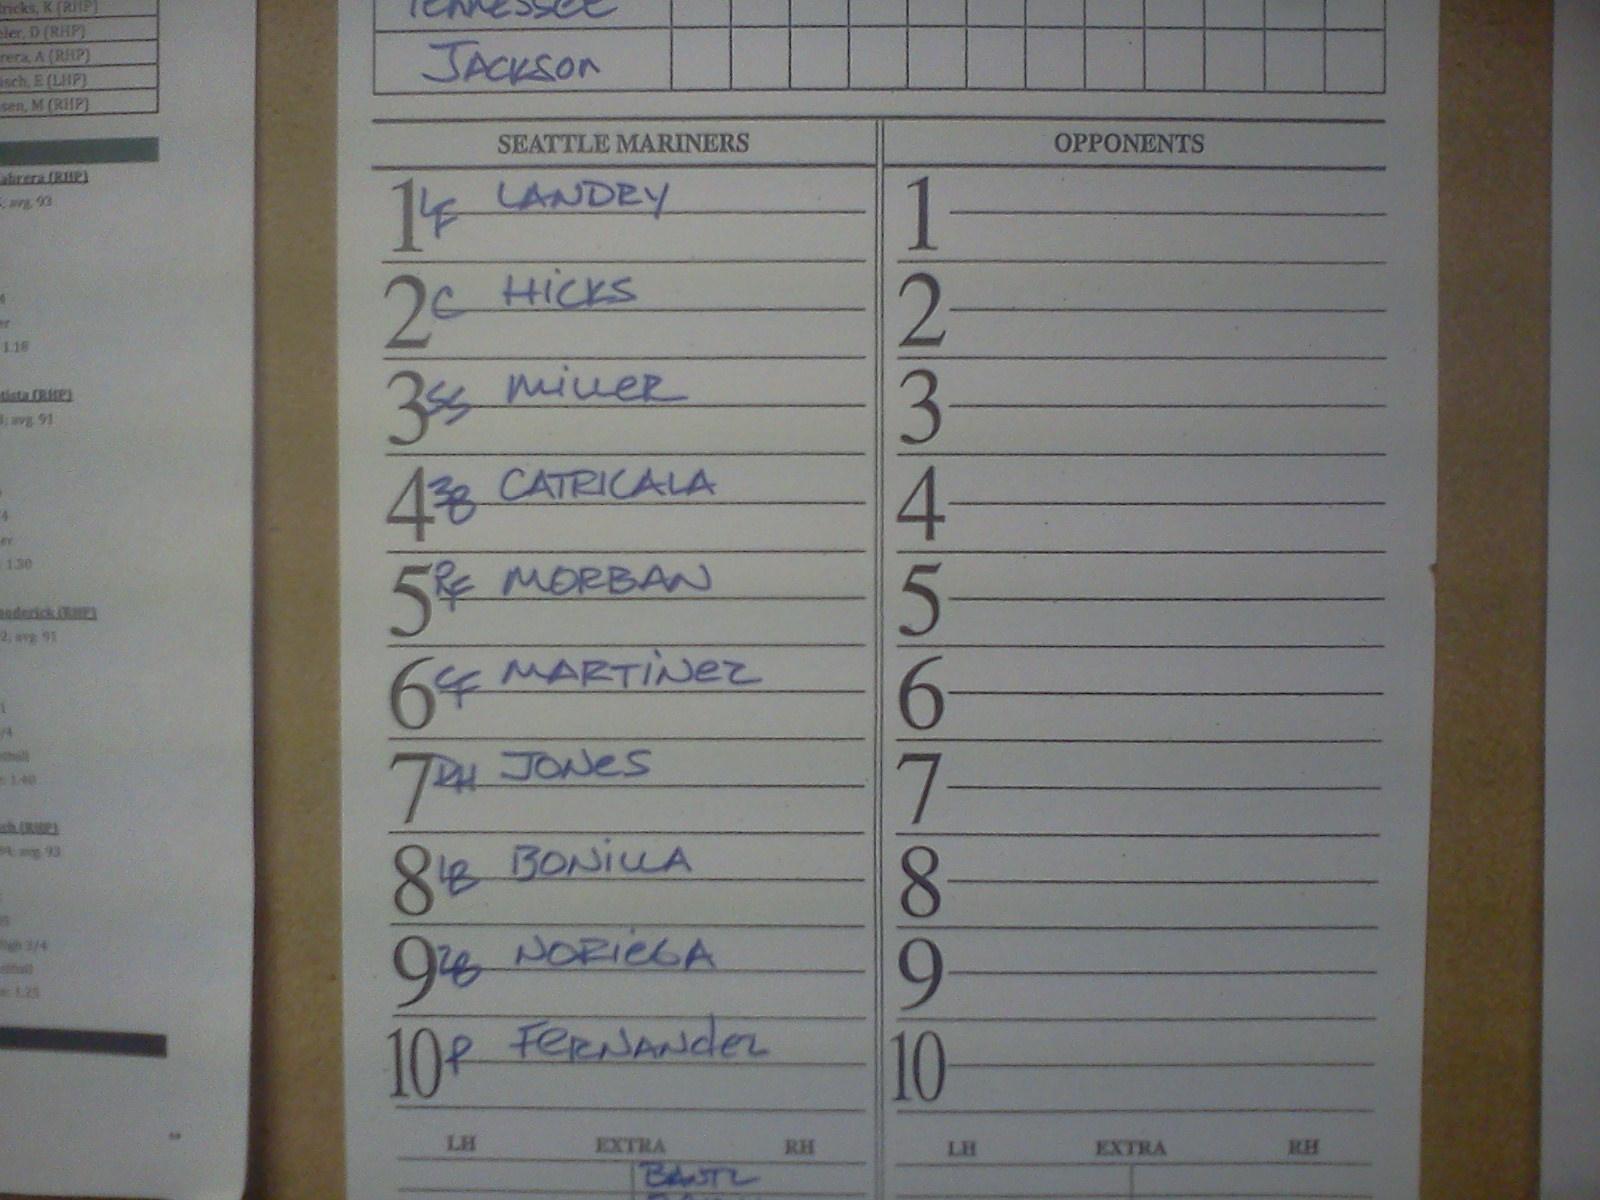 K (RHP)
D (RHP)
A (RHP)
E (LHP)
M (RHP)
(RHP)
avg. 93
1.18
(RHP)
avg. 91
1.30
(RHP)
avg. 91
1.40
(RHP)
avg. 93
3/4
1.25
TENNESSEE
JACKSON
SEATTLE MARINERS OPPONENTS
1 LF LANDRY 1
2 C HiCKS 2
3 SS MiLLeR 3
4 3B CATRICALA 4
5 RF MORBAN 5
6 CF MARTiNez 6
7 DH JONeS 7
8 1B BONiLLA 8
9 2B NORieGA 9
10 P FeRNANdez 10
LH EXTRA RH LH EXTRA RH
BANTZ